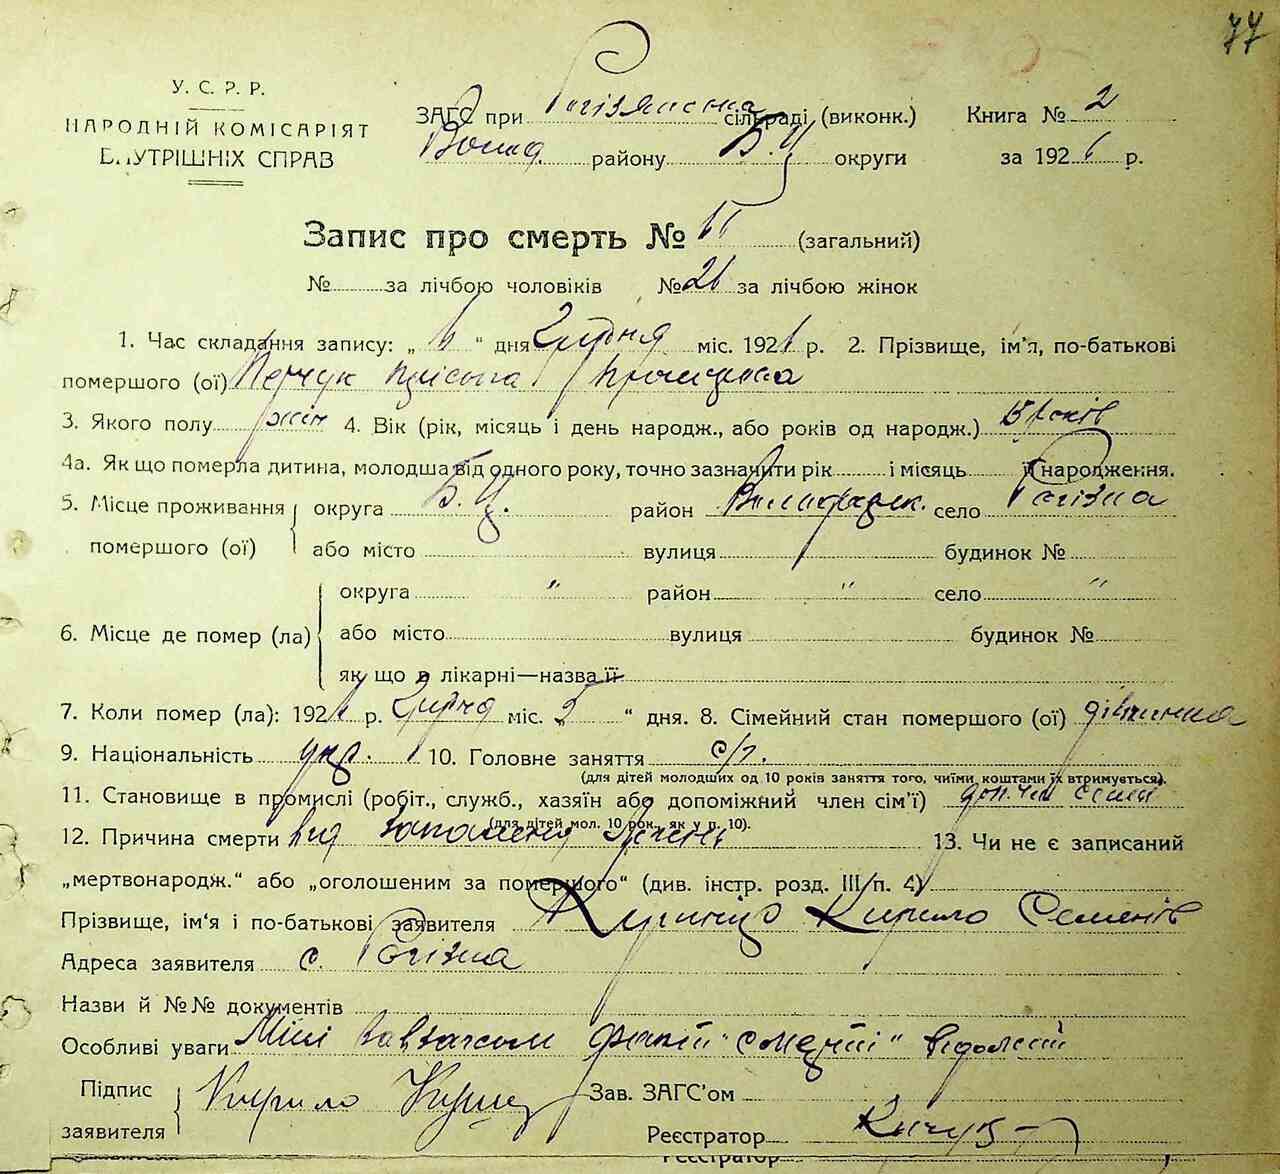 77
У. С. Р. Р.
НАРОДНІЙ КОМІСАРІЯТ
ВНУТРІШНІХ СПРАВ
ЗАГС при сільраді (виконк.) Книга № 2
району Б. Ц. округи за 1926 р.
Запис про смерть № (загальний)
№ за лічбою чоловіків № 26 за лічбою жінок
1. Час складання запису: „ 6 " дня Грудня міс. 1926 р. 2. Прізвище, ім'я, по-батькові
померлого (ої)
3. Якого полу жін 4. Вік (рік, місяць і день народж., або років од народж.) років
4а. Як що померла дитина, молодша від одного року, точно зазначити рік і місяць її народження.
5. Місце проживання округа Б. Ц. район село Рогізна
помершого (ої) або місто вулиця будинок №
округа " район " село "
6. Місце де помер (ла) або місто вулиця будинок №
як що в лікарні—назва її
7. Коли помер (ла): 1926 р. Грудня міс. „ 5 " дня. 8. Сімейний стан помершого (ої) дівчина
9. Національність укр. 10. Головне заняття с/г.
(для дітей молодших од 10 років заняття того, чиїми коштами їх втримується).
11. Становище в промислі (робіт., служб., хазяїн або допоміжний член сім'ї) доп. член семьи
(для дітей мол. 10 рок., як у п. 10).
12. Причина смерти від запалення легень 13. Чи не є записаний
„мертвонародж." або „оголошеним за помершого" (див. інстр. розд. III п. 4)
Прізвище, ім'я і по-батькові заявителя Кирило Семенів
Адреса заявителя с. Рогізна
Назви й №№ документів
Особливі уваги Мені факт смерті відомий
Підпис Кирило Зав. ЗАГС'ом
заявителя Реєстратор
Реєстратор